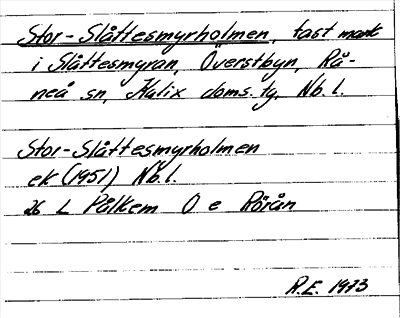 Stor-Slåttesmyrholmen, fast mark
i Slåttesmyran, Överstbyn, Rå-
neå sn, Kalix doms. tg, Nb. l.
Stor-Slåttesmyrholmen
ek (1951) Nb. l.
26 L Pålkem O e Rörån
R.E. 1973